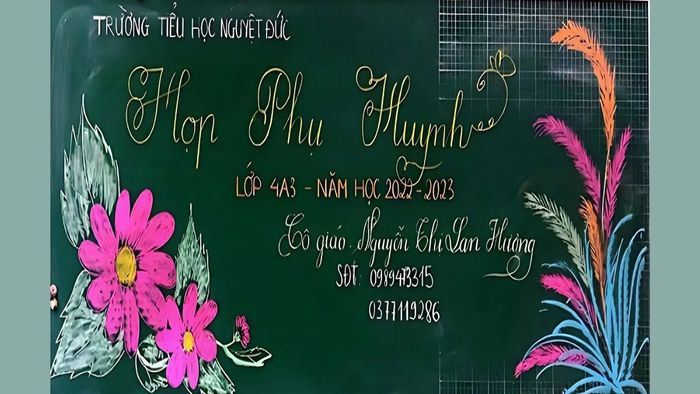 TRƯỜNG TIỂU HỌC NGUYỆT ĐỨC
Họp Phụ Huynh
LỚP 4A3 - NĂM HỌC 2022-2023
Cô giáo: Nguyễn Thị Lan Hương
SĐT: 0989473315
0377119286